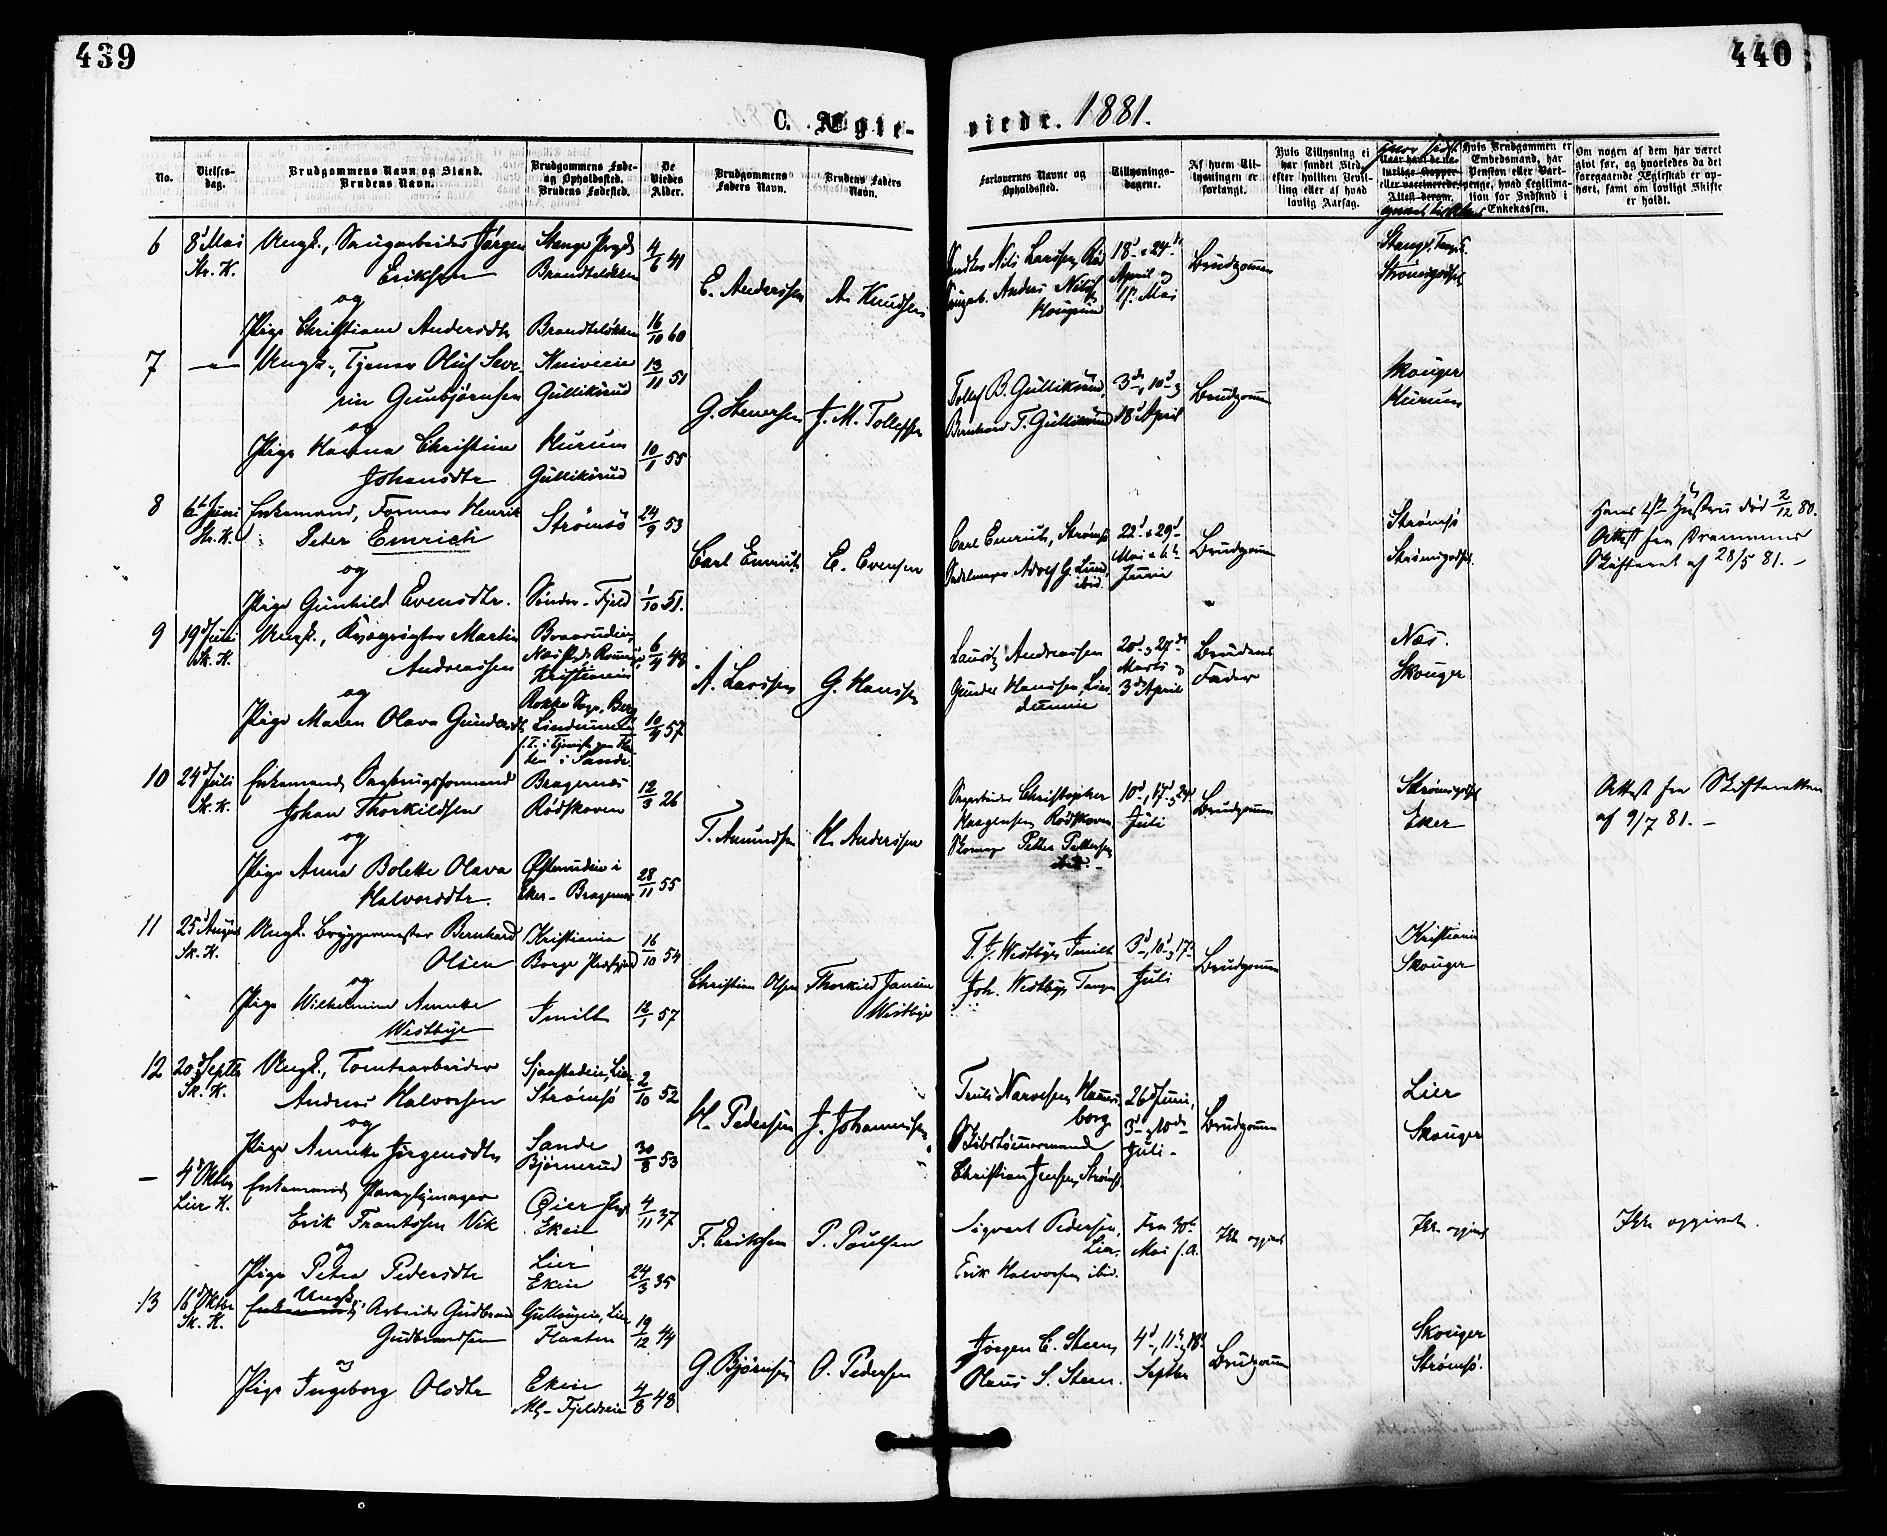 439
440
C. Ægte-
viede. 1881.
No.
Vielses-
dag.
Brudgommens Navn og Stand.
Brudens Navn.
Brudgommens Føde-
og Opholdssted.
Brudens Fødested.
De
Viedes
Alder.
Brudgommens
Faders Navn.
Brudens Faders
Navn.
Forlovernes Navne og
Opholdssted.
Tillysnings-
dagene.
Af hvem Til-
lysningen er
forlangt.
Hvis Tillysning ei
har fundet Sted,
efter hvilken Bevil-
ling eller af hvad
lovlig Aarsag.
Hvis Brudgommen er
Embedsmand, har
Pension eller Vart-
penge, hvad Legitima-
tion for Indskud i
Enkekassen.
Om nogen af dem har været
givt før, og hvorledes da det
foregaaende Ægteskab er op-
hørt, samt om lovligt Skifte
er holdt.
6
8d Mai
Str. K.
Ungk., Saugarbeider Jørgen
Eriksen
og
Pige Christiane Andersdtr
Stange Prgd
Brandteløkken
Brandteløkken
4/6 41
16/10 60
E. Anderssen
A. Knudsen
Nils Larssen
Andr. Nilss
Hougsund
18d & 24d
April og
1ste Mai
Brudgommen
Stange, Tangen
Strømsgodset
7
Ungk., Tjener Oluf Seve-
rin Gunbjørnsen
og
Pige Hanna Christine
Johansdtr
Gullikrud
Hurum
Gullikrud
13/11 51
10/1 55
G. Stenersen
J. M. Tollefsen
Tollef B. Gullikrud,
Bernhard T. Gullikrud
3d, 10d &
18d April
Brudgom
Skouger
Hurum
8
6t Juni
Str. K.
Enkemand, Former Henrik
Peter Emrich
og
Pige Gunhild Evensdtr.
Strømsø
Søndre-Fjeld
24/9 53
1/10 51.
Carl Emrich
E. Evensen
Carl Emrich, Strømsø
Adolf G. Lund,
ibid.
22d & 29d
Mai & 6te
Junii
Brudgom
Strømsø
Strømsgodset
Hans 1ste Hustru død 2/12 80.
Attest fra Drammens
Skifteret af 28/5 81. -
9
19d Juni
Sk. K.
Ungk., Martin
Andreassen
og
Pige Maren Olava Gundersdtr
Kristiania
Rokke Sogn, Berg
i Sande
6/4 48
10/4 57
A. Larssen
G. Hanssen
Lauritz Andreassen
Gunder Hanssen, Lin-
derum
20d & 27d
Marts &
3d April
Brudens
Fader
Næs.
Skouger
10
24d Juli
Sk. K.
Enkemand, Saugbrugsformand
Johan Thorkildsen
og
Pige Anna Bolette Olava
Halvorsdtr.
Bragernæs
Rødskoven
Eker - Bragernæs
12/3 26
28/11 55
T. Amundsen
H. Anderssen
Christopher
Haagensen Rødskoven
Petter Pettersen
ibid. -
10d, 17d & 24d
Juli
Brudgommen
Strømsgodset
Eker
Attest fra Skifteretten
af 9/7 81. -
11
25d August
Sk. K.
Ungk. Bryggermester Bernhard
Olsen
og
Pige Wilhelmine Annette
Westbye
Kristiania
Borge
Smilt
16/10 54
12/1 57
Christian Olsen
Thorkild Jansen
Westbye
T. J. Westbye, Smilt
Joh. Westbye, Tangen
3d, 10d & 17d
Juli
Brudgommen
Kristiania
Skouger
12
20d Septbr
Sk. K.
Ungk., Tomtearbeider
Andreas Halvorsen
og
Pige Annette Jørgensdtr
Lier
Strømsø
Sande
Bjørnerud
2/10 52
30/8 53
H. Pedersen
J. Johannessen
Truls Narvesen
borg
Christian Jensen, Strømsø
26d Juni,
3d & 10d
Juli -
Brudgommen
Lier
Skouger
–
4d Oktbr
Lier K.
Enkemand, Paraplymager
Erik Frantssen Vik
og
Pige Petra Pedersdtr
Eker
Lier
Eker
4/11 37
24/3 35
F. Eriksen
P. Poulsen
Sigvart Pedersen,
Lier,
Erik Halvorsen, ibid.
Fra 30te
Mai f. A.
Ikke opgivet
Ikke opgivet
Ikke opgivet.
13
16d Oktbr
Sk. K.
Ungk.
Enkemand, Arbeider Gudbrand
Gudbrandsen
og
Pige Ingeborg Olsdtr
Gullaugeie, Lier
Flaaten
Ekeie
Fjeldseie
19/12 44
4/8 48
G. Bjørnsen
O. Pedersen
Jørgen E. Steen,
Olaus S. Steen.
4d, 11te & 18d
Septbr
Brudgommen
Skouger
Strømsø.